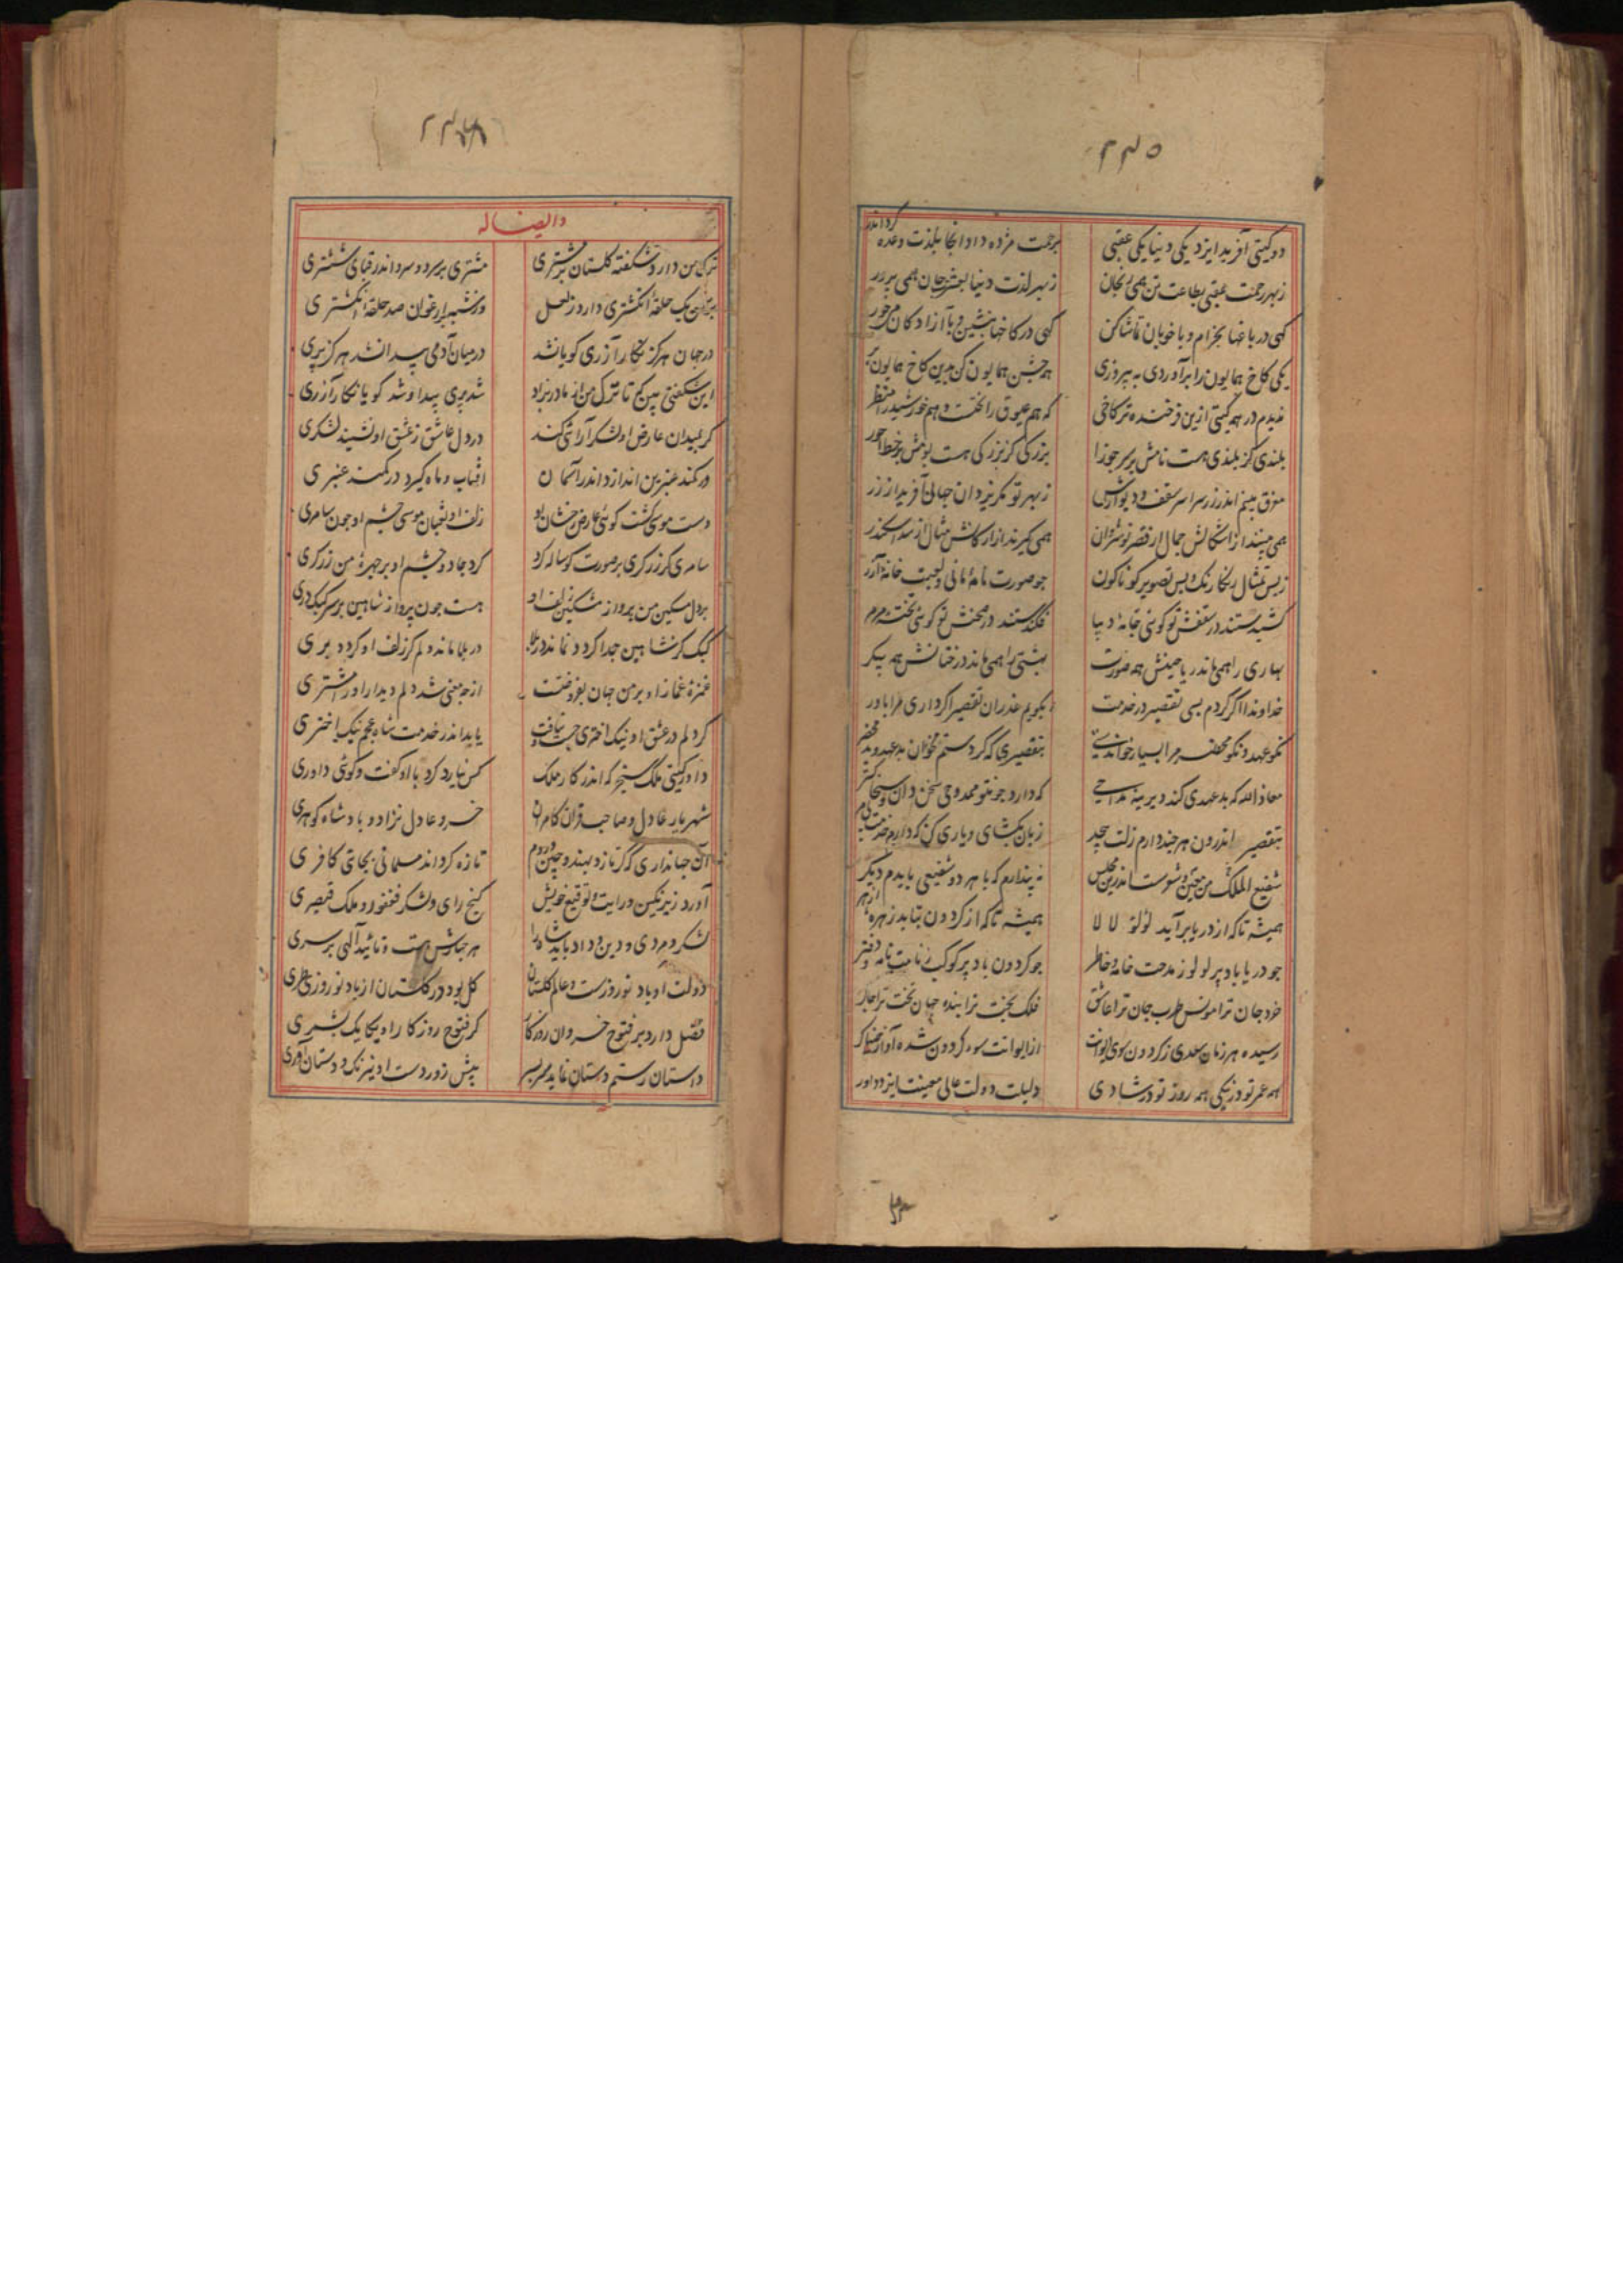 ۲۴۵
دو کیتی آفرید ایزد یکی دنیا یکی عقبی برحمت مژده داد آنجا بلذت وعده کرد اندر
ز بهر رحمت عقبی بطاعت تن همی رنجان ز بهر لذت دنیا بعشرت جان همی پرور
کهی در باغها بخرام و با خوبان تماشا کن کهی در کاخها بنشین و با آزادکان می خور
یکی کاخ همایون را برآوردی به پیروزی همه جشن همایون کن بدین کاخ همایون بر
ندیدم در همه کیتی ازین فرخنده تر کاخی که هم عیوق را تختست و هم خورشید را منظر
بلندی کز بلندی هست نامش بر سر جوزا بزرکی کز بزرکی هست بومش بر خط محور
معرق بینم اندر زر سراسر سقف و دیوارش ز بهر تو مکر یزدان جهانی آفرید از زر
همی بینند از اشکالش جمال از قصر نوشروان همی کیرند از ارکانش مثال از سد اسکندر
ز بس تمثال رنکارنک و بس تصویر کوناکون چو صورت نامهٔ مانی و لعبت خانهٔ آزر
کشیدستند در سقفش تو کوئی جامهٔ دیبا فکندستند در صحنش تو کوئی تختهٔ مرمر
بهاری را همی ماند ریاحینش همه صورت بهشتی را همی ماند درختانش همه پیکر
خداوندا اکر کردم بسی تقصیر در خدمت بکویم عذر آن تقصیر اکر داری مرا باور
نکو عهد و نکو محضر مرا بسیار خواندستی بتقصیری که کردستم مخوان بد عهد و بد محضر
معاذ الله که بد عهدی کند دیرینه مداحی که دارد چون تو ممدوحی سخن دان و سخا کستر
بتقصیر اندرون هر چند دارم زلت بیحد زبان بکشای و یاری کن که دارم خدمت بی مر
شفیع الملک من معین تو شوست اندرین مجلس نه پندارم که با هر دو شفیعی بایدم دیکر
همیشه تا که از دریا برآید لؤلؤ لالا همیشه تا که از کردون بتابد زهرهٔ ازهر
چو دریا باد پر لولو ز مدحت خانه و خاطر چو کردون باد پر کوکب ز نامت نامه و دفتر
خرد جان ترا مونس طرب جان ترا عاشق فلک بخت ترا بنده جهان تخت ترا چاکر
رسیده هر زمان سعدی ز کردون سوی ایوانت از ایوانت سوی کردون شده آواز خنیاکر
همه عمر تو در نیکی همه روز تو در شادی دلیلت دولت عالی معینت ایزد داور
وایضاً له
ترک من دارد شکفته کلستان بر مشتری مشتری بر سرو و سرو اندر قبای ششتری
یک حلقهٔ انکشتری دارد ز لعل ارغوان صد حلقهٔ انکشتری
در جهان هرکز نکار آزری کویا نشد در میان آدمی پیدا نشد هرکز پری
این شکفتی بین که تا ترک من از مادر بزاد شد پری پیدا و شد کویا نکار آزری
کر بمیدان عارض او لشکر آرائی کند در دل عاشق ز عشق او نشیند لشکری
ور کمند عنبرین اندازد اندر آسمان آفتاب و ماه کیرد در کمند عنبری
دست موسی کشت کوئی عارض رخشان او زلف او ثعبان موسی چشم او چون سامری
سامری کر زرکری بر صورت کوساله کرد کرد جادو چشم او بر چهرهٔ من زرکری
بر دل مسکین من پرواز مشکین زلف او هست چون پرواز شاهین بر سر کبک دری
کبک کر شاهین جدا کردد نماند در بلا در بلا ماند دلم کر زلف او کردد بری
غمزهٔ غماز او بر من جهان بفروختست از چه معنی شد دلم دیدار او را مشتری
کر دلم در عشق او نیک اختری جست و نیافت یابد اندر خدمت شاه عجم نیک اختری
داور کیتی ملک سنجر که اندر کار ملک کس نیارد کرد با او کفت و کوئی داوری
شهریار عادل و صاحب قران کامران خسرو عادل نژاد و پادشاه کوهری
آن جهانداری که کر تازد بهند و چین و روم تازه کرداند مسلمانی بجای کافری
آورد زیر نکین و رایت و توقیع خویش کنج رای و لشکر فغفور و ملک قیصری
لشکر و مردی و دین و داد باید شاه را هر چهارش هست و تائید آلهی بر سری
دولت او باد نوروزست و عالم کلستان کل بود در کلستان از باد نوروزی طری
فضل دارد بر فتوح خسروان روزکار کر فتوح روزکار او یکایک بشمری
داستان رستم دستان نماید سر بسر پیش زور دست او نیرنک و دستان آوری